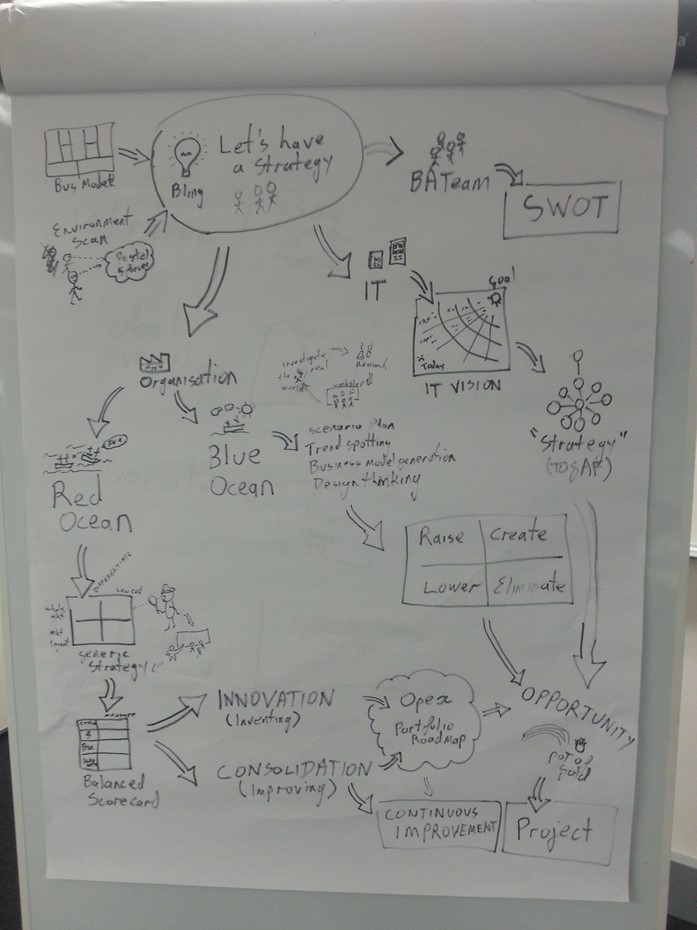 Let's have
a Strategy
Bling
Bus Model
Environment
Scan
BATeam
SWOT
IT
Goal
Today
IT VISION
"Strategy"
(TOGAF)
Organisation
investigate
the real
world
Research
Red
Ocean
Blue
Ocean
scenario plan
Trend spotting
Business model generation
Design thinking
Raise
Create
Lower
Eliminate
generic
strategy
Balanced
Scorecard
INNOVATION
(Inventing)
CONSOLIDATION
(Improving)
Opex
Portfolio
Roadmap
OPPORTUNITY
pot of
gold
CONTINUOUS
IMPROVEMENT
Project